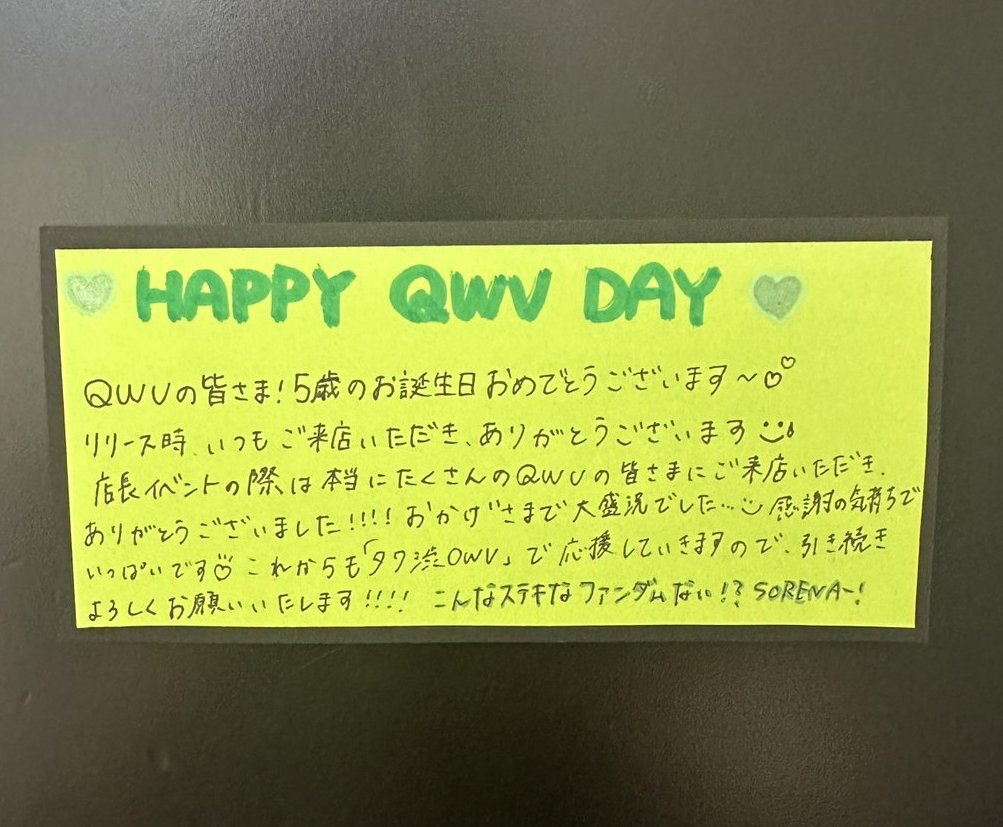 HAPPY QWV DAY
QWVの皆さま!5歳のお誕生日おめでとうございます〜
リリース時、いつもご来店いただき、ありがとうございます
店長イベントの際は本当にたくさんのQWVの皆さまにご来店いただき、
ありがとうございました!!!!おかげさまで大盛況でした…感謝の気持ちで
いっぱいです これからも「タワ渋OWV」で応援していきますので、引き続き
よろしくお願いいたします!!!! こんなステキなファンダムない!?SORENA〜!